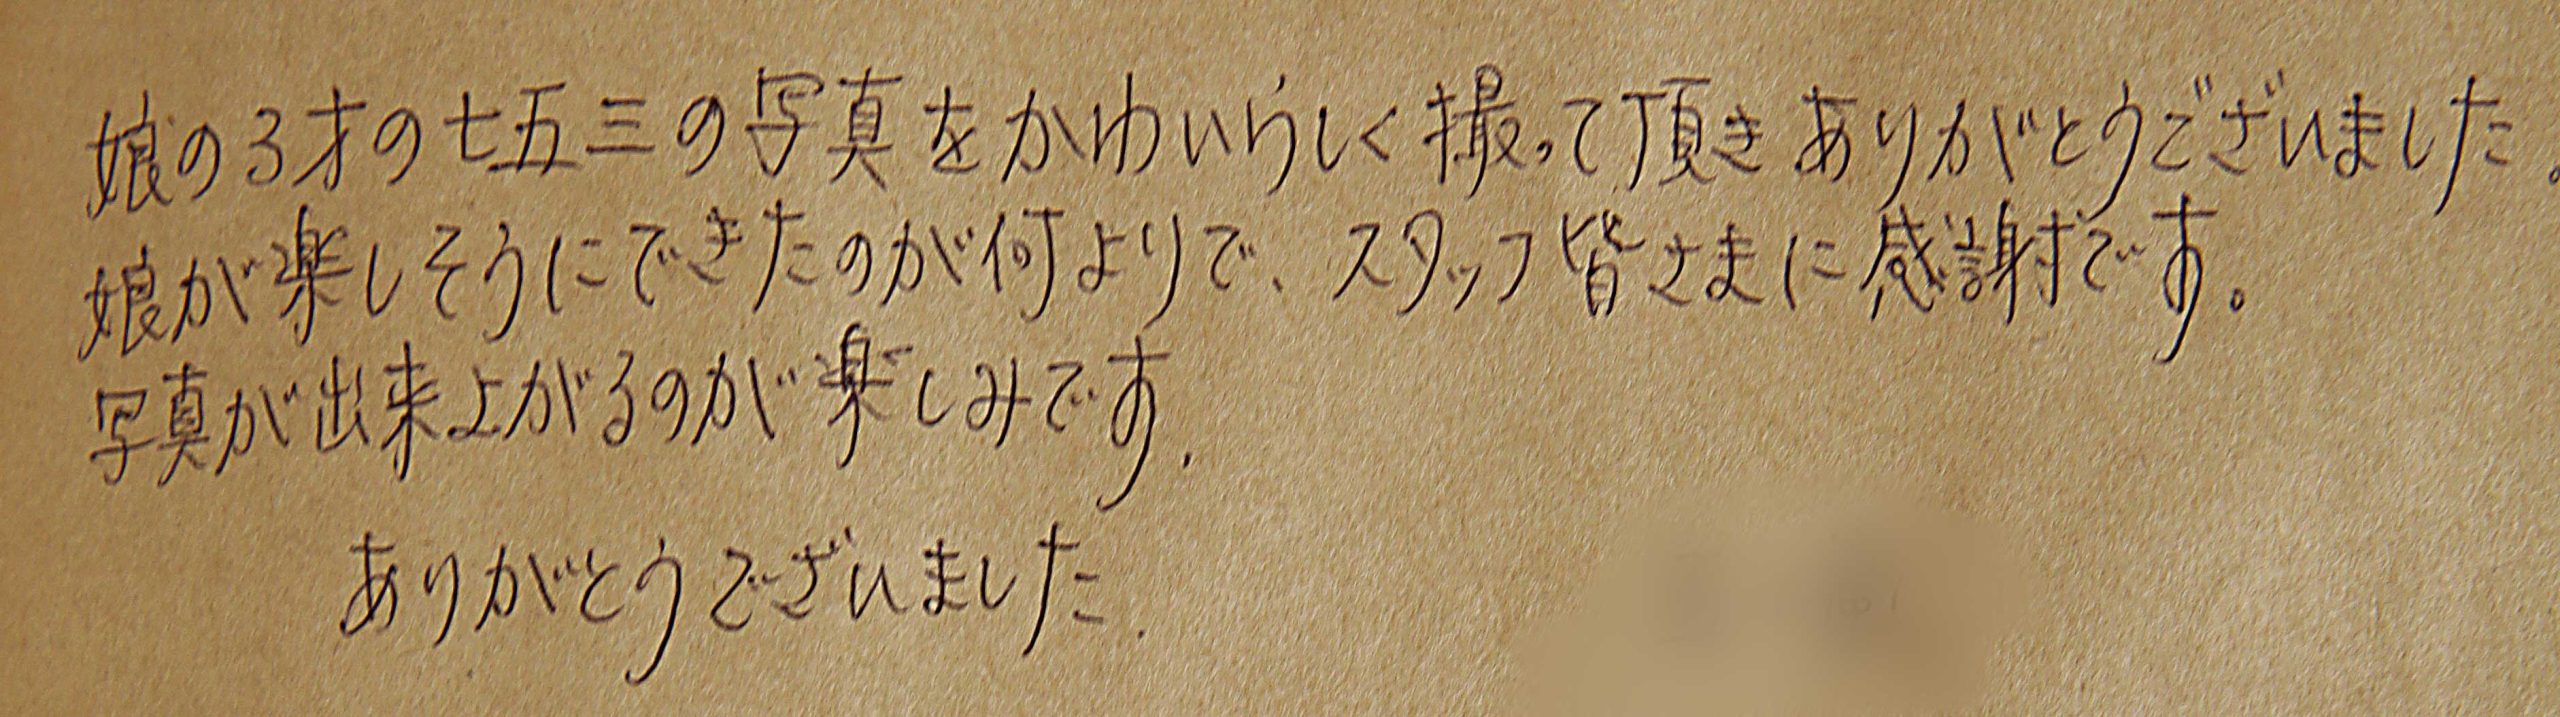 娘の3才の七五三の写真をかわいらしく撮って頂きありがとうございました。
娘が楽しそうにできたのが何よりで、スタッフ皆さまに感謝です。
写真が出来上がるのが楽しみです.
ありがとうございました.